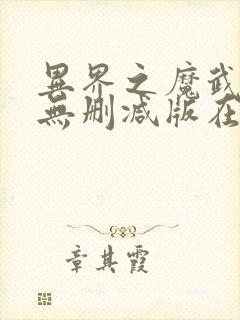 異界之魔武
無删减版在
章其霞